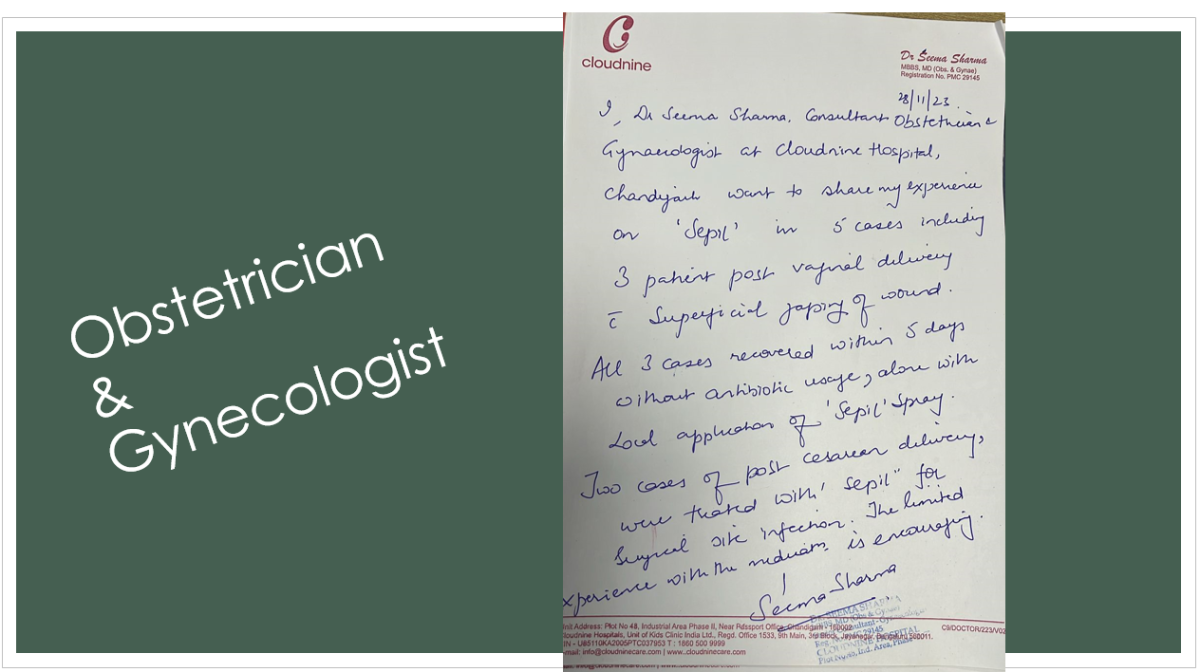 Obstetrician
&
Gynecologist
cloudnine
Dr Seema Sharma
MBBS, MD (Obs. & Gynae)
Registration No. PMC 29145
28/11/23.
I, Dr Seema Sharma, Consultant Obstetrician &
Gynaecologist at Cloudnine Hospital,
Chandigarh want to share my experience
on 'Sepil' in 5 cases including
3 patient post vaginal delivery
c̄ Superficial gaping of wound.
All 3 cases recovered within 5 days
without antibiotic usage, alone with
Local application of 'Sepil' Spray.
Two cases of post cesarean delivery,
were treated with 'Sepil" for
Surgical site infection. The limited
xperience with the medicatn is encouraging.
Seema Sharma
nit Address: Plot No 48, Industrial Area Phase II, Near Passport Office, Chandigarh - 160002
loudnine Hospitals, Unit of Kids Clinic India Ltd., Regd. Office 1533, 9th Main, 3rd Block, Jayanagar, Bengaluru 560011.
IN - U85110KA2005PTC037953 T : 1860 500 9999
mail: info@cloudninecare.com | www.cloudninecare.com
C9/DOCTOR/223/V03
SEEMA SHARMA
29145
CLOUDNINE HOSPITAL
Plot No.48, Ind. Area, Phase